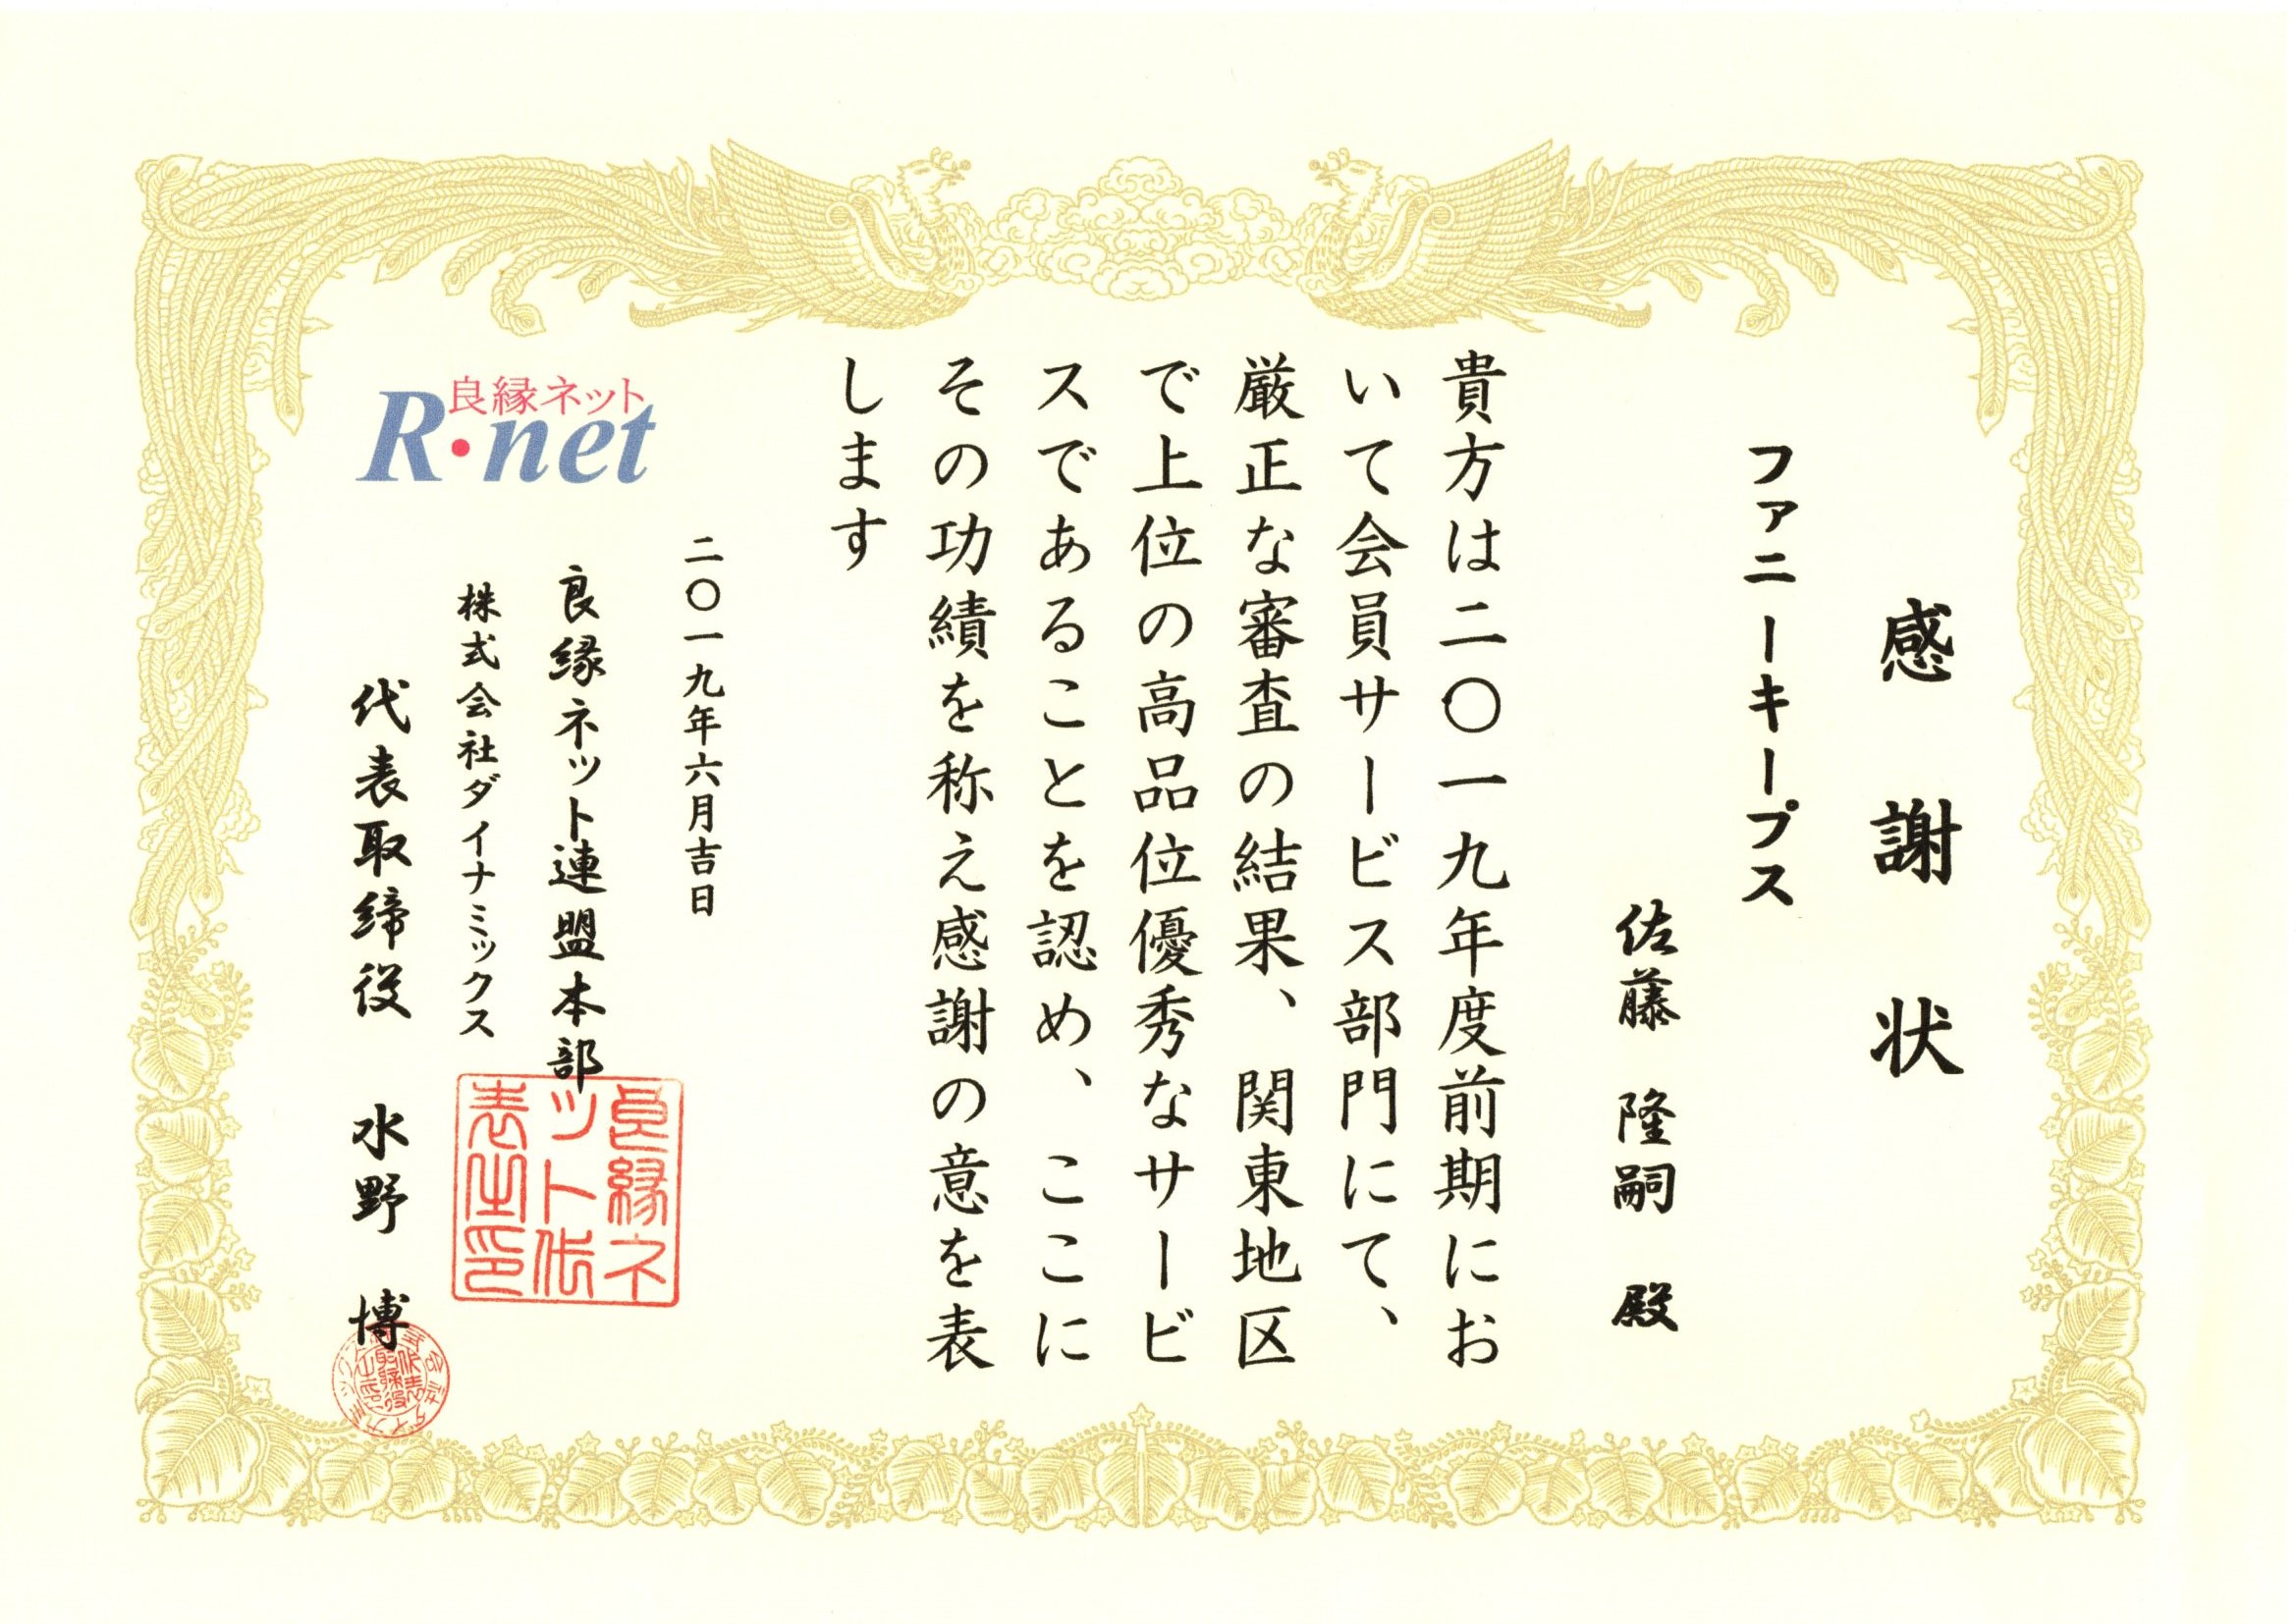 感謝状
ファニーキープス
佐藤 隆嗣 殿
貴方は二〇一九年度前期にお
いて会員サービス部門にて、
厳正な審査の結果、関東地区
で上位の高品位優秀なサービ
スであることを認め、ここに
その功績を称え感謝の意を表
します
二〇一九年六月吉日
良縁ネット
R・net
良縁ネット連盟本部
株式会社ダイナミックス
代表取締役 水野 博
良縁ネ
ット代
表之印